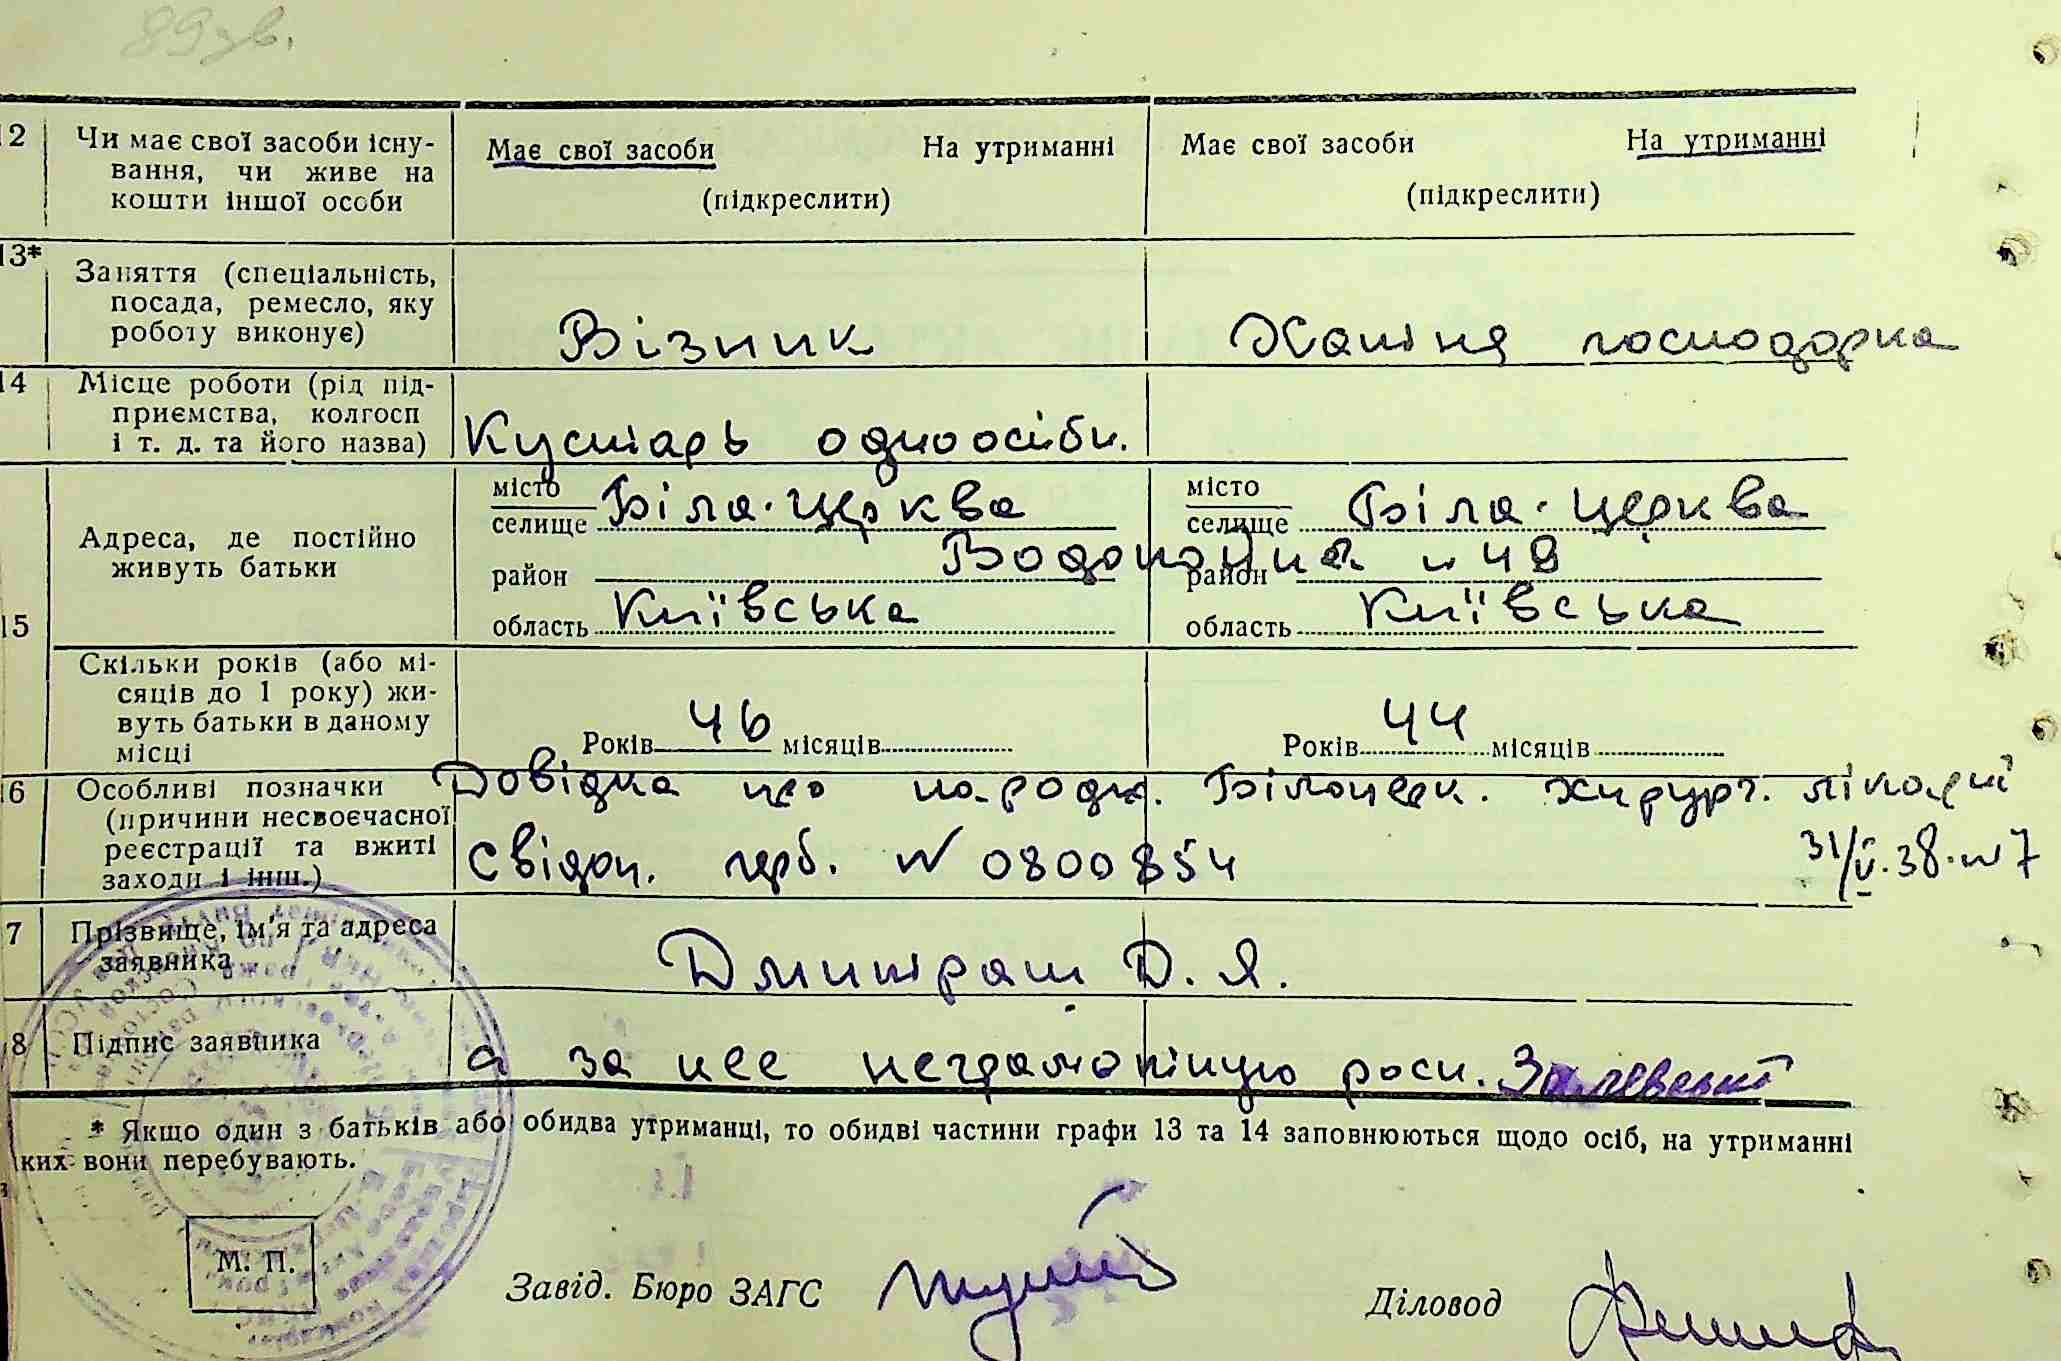 89 зв.
12 Чи має свої засоби існу- Має свої засоби На утриманні Має свої засоби На утриманні
вання, чи живе на (підкреслити) (підкреслити)
кошти іншої особи
13* Заняття (спеціальність,
посада, ремесло, яку
роботу виконує) Візник Хатня господарка
14 Місце роботи (рід під-
приємства, колгосп
і т. д. та його назва) Кустарь одноосібн.
місто Біла-Церква місто Біла-Церква
селище селище
Адреса, де постійно
живуть батьки район № 49 район
область Київська область Київська
15
Скільки років (або мі-
сяців до 1 року) жи-
вуть батьки в даному
місці Років 46 місяців Років 44 місяців
16 Особливі позначки Довідка про народж. Білоцерк. хирург. лікарні
(причини несвоєчасної
реєстрації та вжиті 31/V.38. №7
заходи і інш.) Свідоц. герб. № 0800854
17 Прізвище, ім'я та адреса
заявника Дмитраш Д. Я.
18 Підпис заявника а за нее неграмотную росп.
* Якщо один з батьків або обидва утриманці, то обидві частини графи 13 та 14 заповнюються щодо осіб, на утриманні
ких вони перебувають.
М. П.
Завід. Бюро ЗАГС Діловод